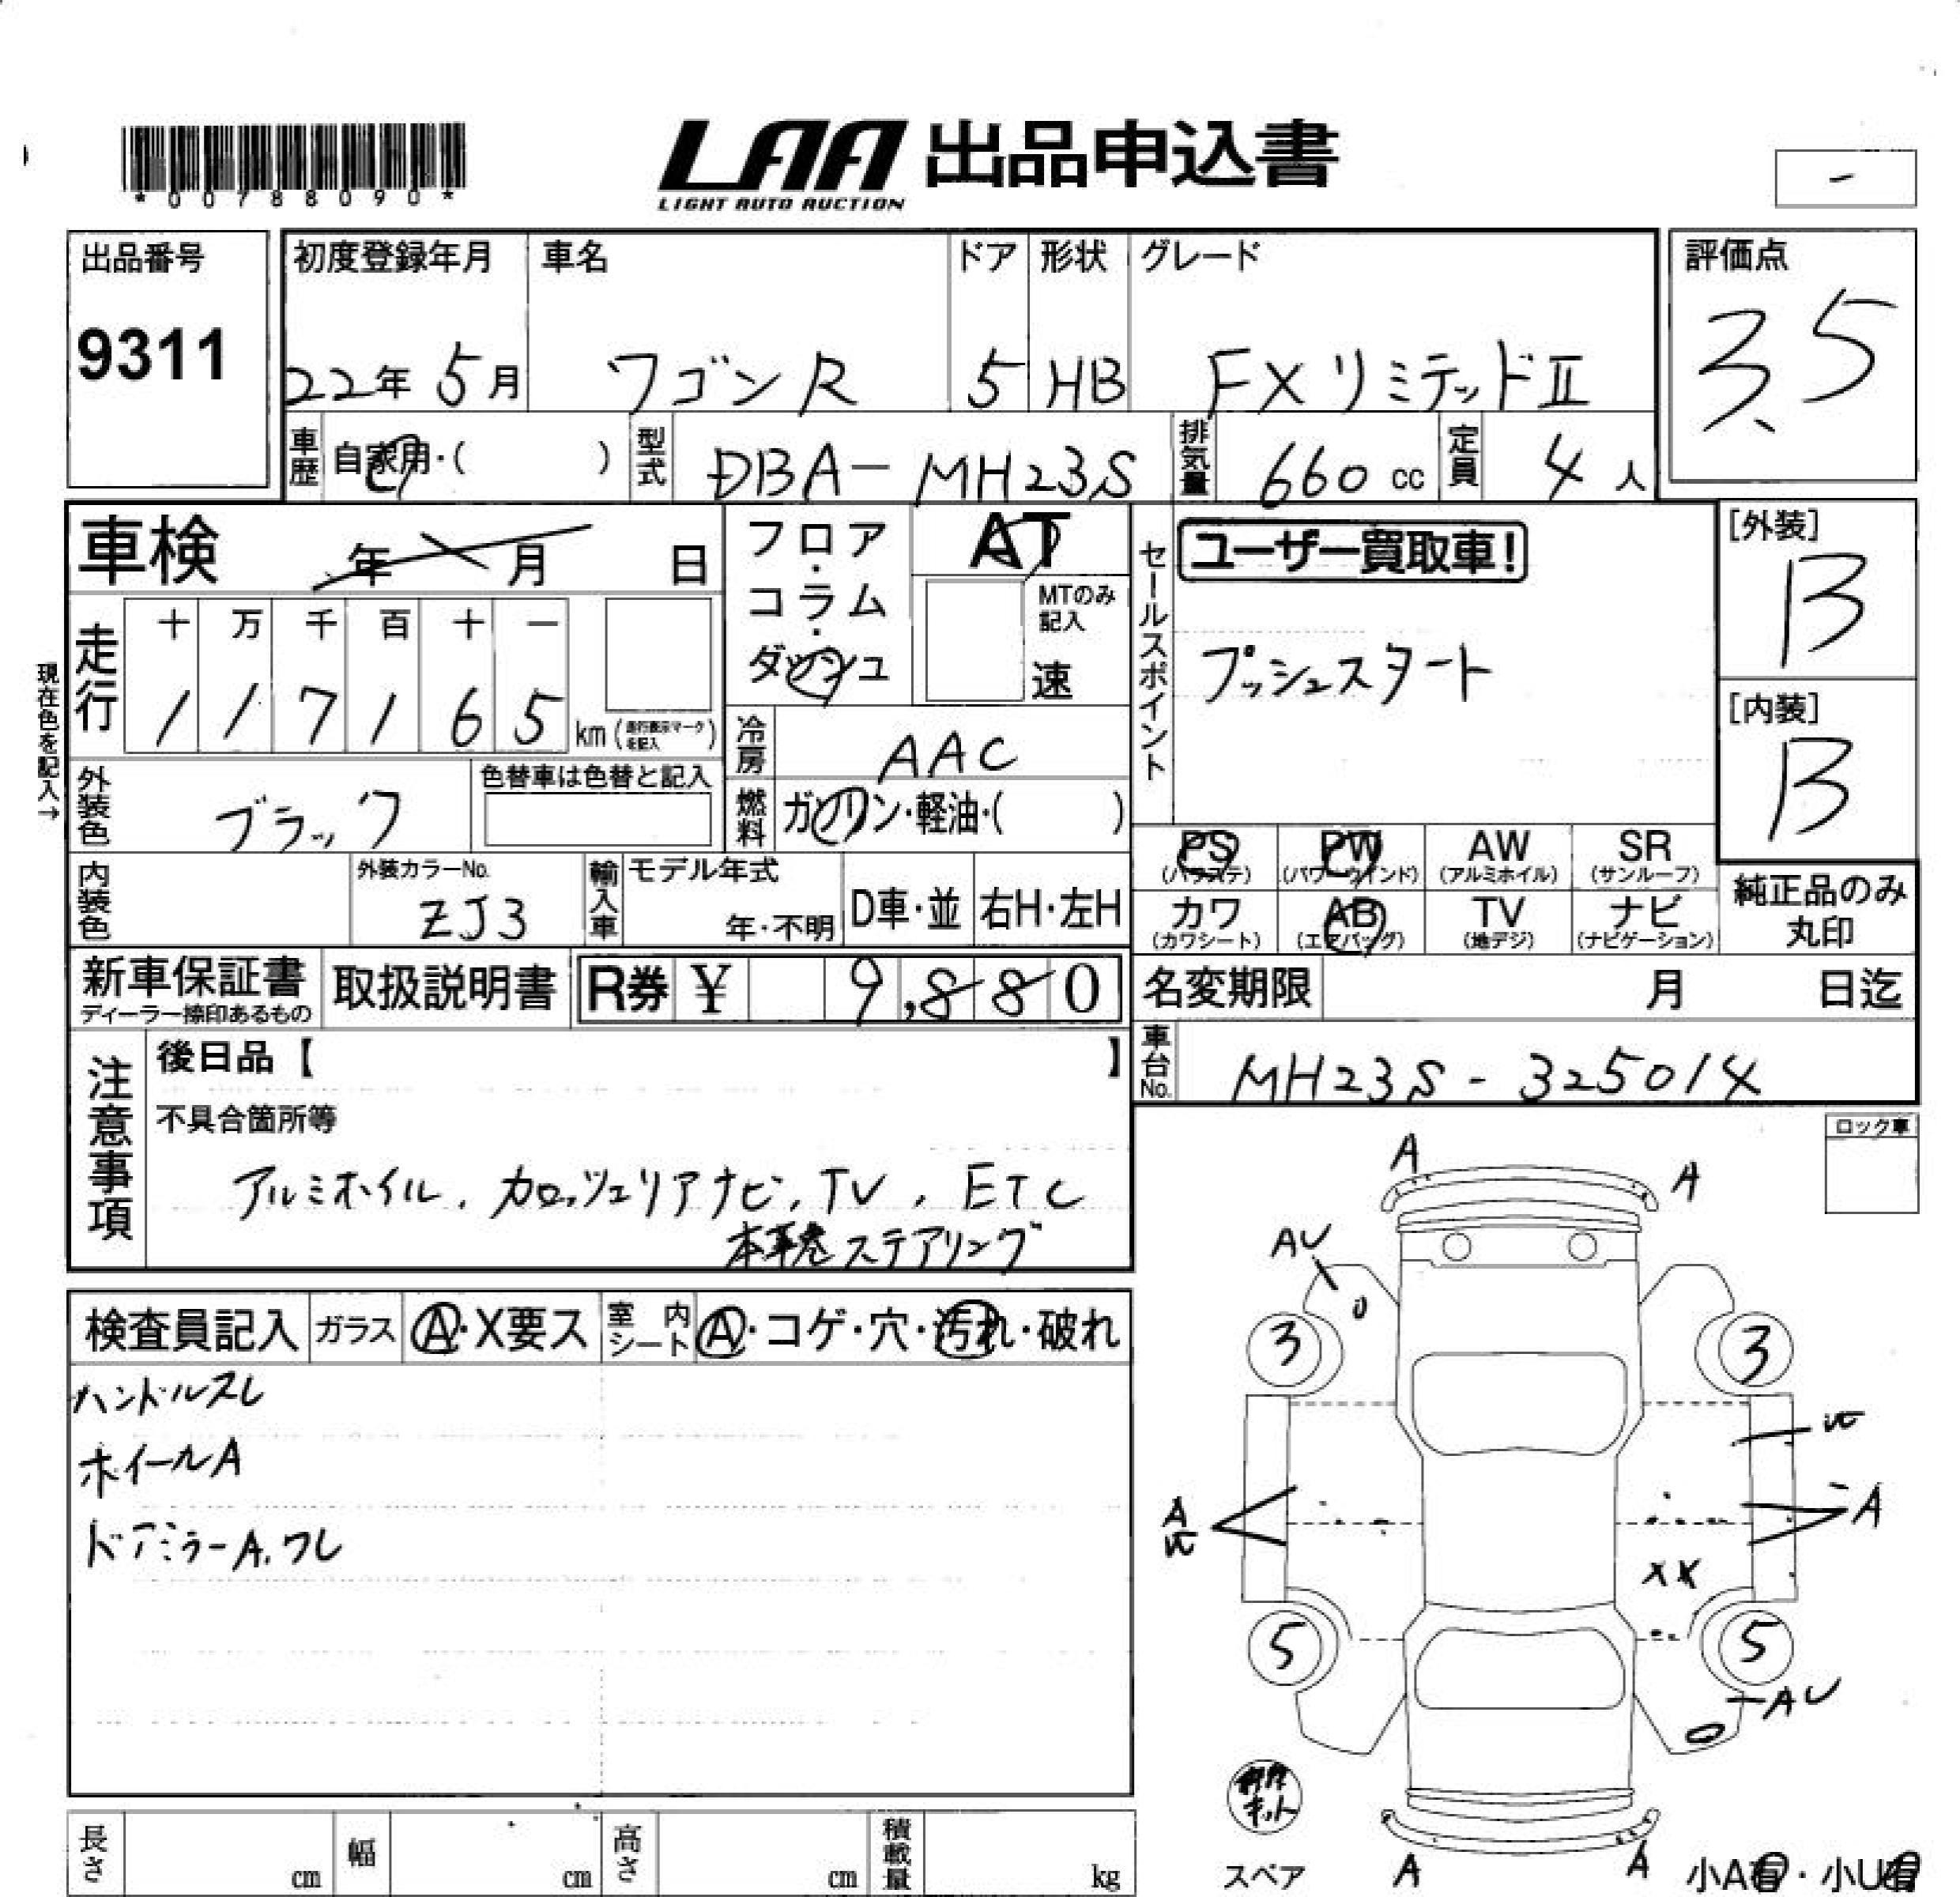 *00788090*
LAA 出品申込書
LIGHT AUTO AUCTION
-
出品番号
9311
初度登録年月 車名 ドア 形状 グレード
22年 5月 ワゴンR 5 HB FXリミテッドⅡ
評価点
3.5
車歴 自家用・( ) 型式 DBA-MH23S 排気量 660 cc 定員 4人
車検 年 月 日
フロア・コラム・ダッシュ
AT
MTのみ記入
速
セールスポイント
ユーザー買取車!
プッシュスタート
[外装]
B
[内装]
B
現在色を記入→
走行
十 万 千 百 十 一
1 1 7 1 6 5 km (走行表示マークを記入)
冷房 AAC
外装色 ブラック
色替車は色替と記入
燃料 ガソリン・軽油・( )
PS (パワステ) PW (パワーウインド) AW (アルミホイル) SR (サンルーフ)
カワ (カワシート) AB (エアバッグ) TV (地デジ) ナビ (ナビゲーション)
純正品のみ丸印
内装色
外装カラーNo.
ZJ3
輸入車 モデル年式 年・不明 D車・並 右H・左H
新車保証書
ディーラー捺印あるもの
取扱説明書
R券 ¥ 9,880
名変期限 月 日迄
車台No. MH23S-325014
注意事項
後日品【 】
不具合箇所等
アルミホイル、カロッツェリアナビ、TV、ETC
本革巻ステアリング
ロック車
検査員記入 ガラス A・X要ス 室内シート A・コゲ・穴・汚れ・破れ
ハンドルスレ
ホイールA
ドアミラーA.ワレ
A
A
AU
3
3
A
A
XX
5
5
AU
キット
スペア
A
A
小A有・小U有
長さ cm 幅 cm 高さ cm 積載量 kg